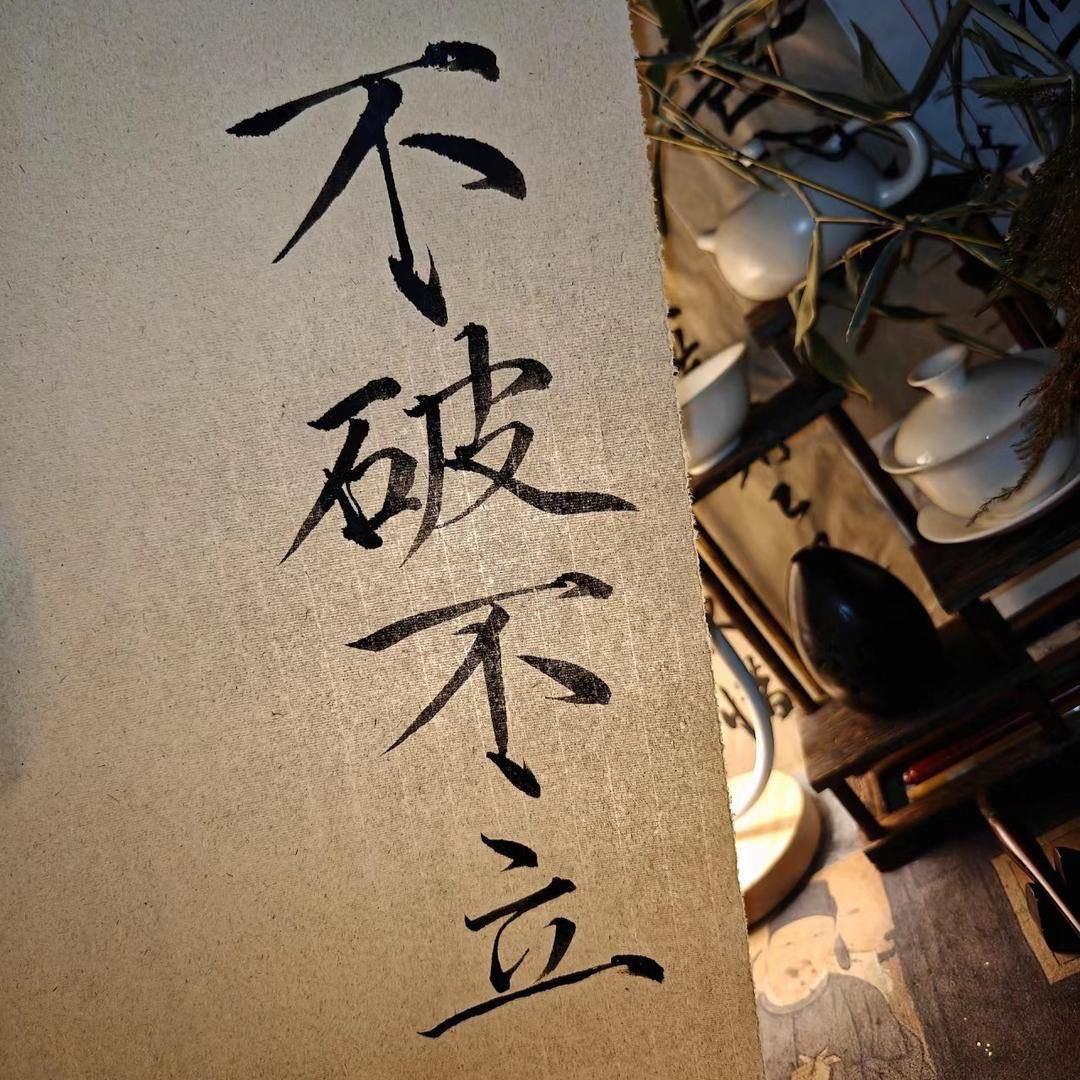 不破不立